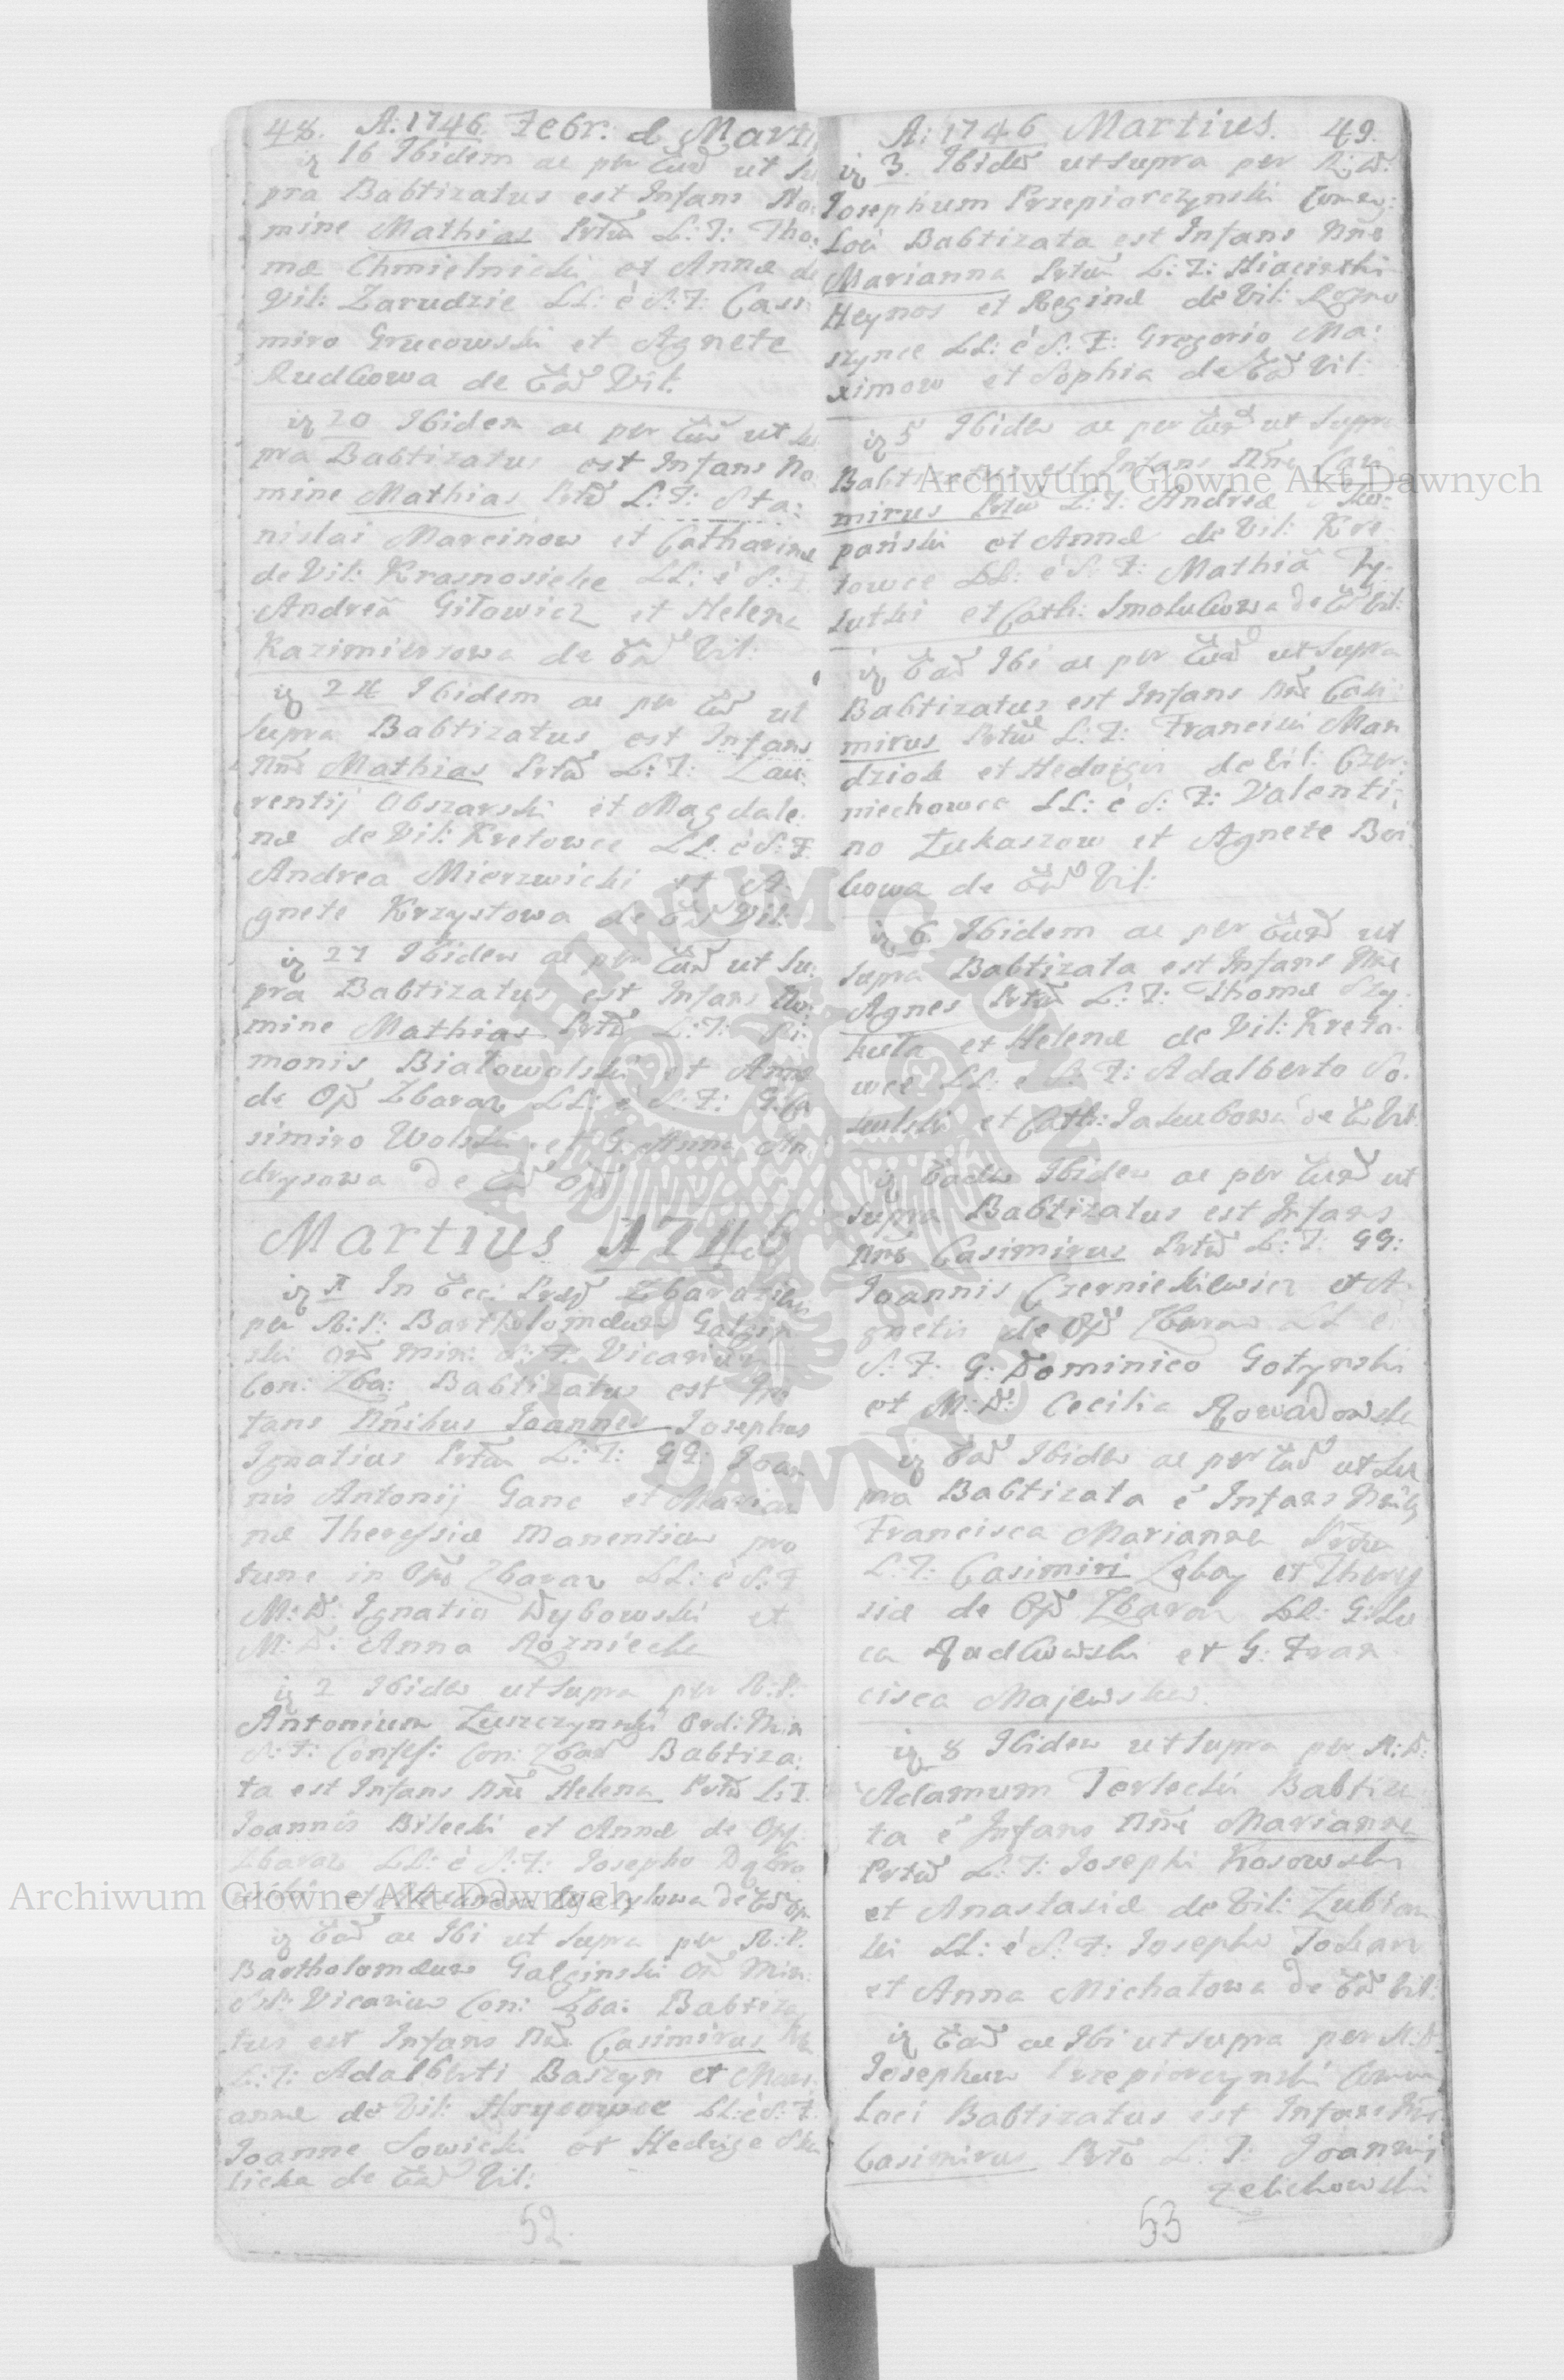 48. A: 1746 Febr: & Marti
16 Ibidem ac per Eund ut Su
pra Babtizatus est Infans No:
mine Mathias Prtu L: T: Tho:
mæ Chmielnicki et Annæ de
Vil: Zarudzie LL: è S: F: Casi
miro Grucowski et Agnete
Rudkowa de Ead Vil:
20 Ibidem ac per Eund ut Su
pra Babtizatus est Infans No
mine Mathias L: T: Sta:
nislai Marcinow et Catharinæ
de Vil: Krasnosielce LL: è S: F
Andreâ Giłowicz et Helena
Kazimierzowa de Ead Vil:
24 Ibidem ac per Eund ut
supra Babtizatus est Infans
Nne Mathias L: T: Lau:
rentij Obszarski et Magdale
næ de Vil: Kretowce LL: è S: F
Andrea Mierzwicki et A
gnete Krzysztowa de Ead Vil:
27 Ibidem ac per Eund ut Su:
pra Babtizatus est Infans No:
mine Mathias L: T: Si:
monis Białowolski et Annæ
de Opd Zbaraz LL: è S: F: G: Ca
simiro Wolski et G: Anna An
drysowa de Eod Opd
Martius 1746
1 In Eccl:
per R: P: Bartholomæum Galgin
ski Ord Min: S: F: Vicarium
Con: Zba: Babtizatus est In
fans Nnibus Joannes Josephus
Ignatius L: T: GG: Joan
nis Antonij Ganc et Marian
næ Theressiæ Manentium pro
tunc in Opd Zbaraz LL: è S: F
M: D: Ignatio Dybowski et
M: D: Anna Rozniecka
2 Ibidem ut supra per R: P:
Antonium Zuszczynski Ord: Min
S: F: Confess: Con: Zbar Babtiza:
ta est Infans Nne Helena L: T
Joannis Bilecki et Annæ de Opd
Zbaraz LL: è S: F: Josepho Dąbro
wski et de Eod Op
Ead ac Ibi ut supra per R: P:
Bartholomæum Galginski Ord Min:
S: F: Vicarium Con: Zba: Babtiza
tus est Infans Nne Casimirus
L: T: Adalberti Baszyn et Mari
annæ de Vil: Hrycowce LL: è S: F
Joanne Sowicki et Hedvige
licka de Ead Vil:
52
A: 1746 Martius. 49.
3. Ibidem ut supra per R: D:
Josephum Przepiorczynski Comen:
Loci Babtizata est Infans Nne
Marianna L: T: Hiacinthi
Heynos et Reginæ de Vil:
LL: è S: F: Gregorio Ma:
ximow et Sophia de Ead Vil:
5 Ibidem ac per Eund ut supra
Babtizatus est Infans Nne Casi
mirus L: T: Andreæ
et Annæ de Vil: Kre
towce LL: è S: F: Mathiâ
et Cath: Smolukowa de Ead Vil:
Ead Ibi ac per Eund ut supra
Babtizatus est Infans Nne Casi
mirus L: T: Francisci Man
dziok et Hedvigis de Vil: Czer:
niechowce LL: è S: F: Valenti:
no Łukaszow et Agnete Boi
kowa de Ead Vil:
6 Ibidem ac per Eund ut
supra Babtizata est Infans Nne
Agnes L: T: Thomæ
et Helenæ de Vil: Kreto
wce LL: è S: F: Adalberto So
kulski et Cath: Jakubowa de Ead Vil:
Eadem Ibidem ac per Eund ut
supra Babtizatus est Infans
Nne Casimirus L: T: GG:
Joannis Czernielewicz et A
gnetis de Opd Zbaraz LL è
S: F: G: Dominico Gotynski
et M: D: Cecilia Rowadowska
Ead Ibidem ac per Eund ut Su
pra Babtizata è Infans
Francisca Marianna
L: T: Casimiri et Theres
siæ de Opd Zbaraz LL: G: Lu
ca Radkowski et G: Fran
cisca Majewska.
8 Ibidem ut supra per R: D:
Adamum Terlecki Babtiza
ta è Infans Nne Marianna
L: T: Josephi Kosowski
et Anastasiæ de Vil:
LL: è S: F: Josepho Tokarz
et Anna Michałowa de Ead Vil:
Ead ac Ibi ut supra per R: D:
Josephum Przepiorczynski Comen
Loci Babtizatus est Infans Nne
Casimirus L: T: Joannis
Zelichowski
53
Archiwum Główne Akt Dawnych
Archiwum Główne Akt Dawnych
ARCHIWUM GŁÓWNE
AKT DAWNYCH